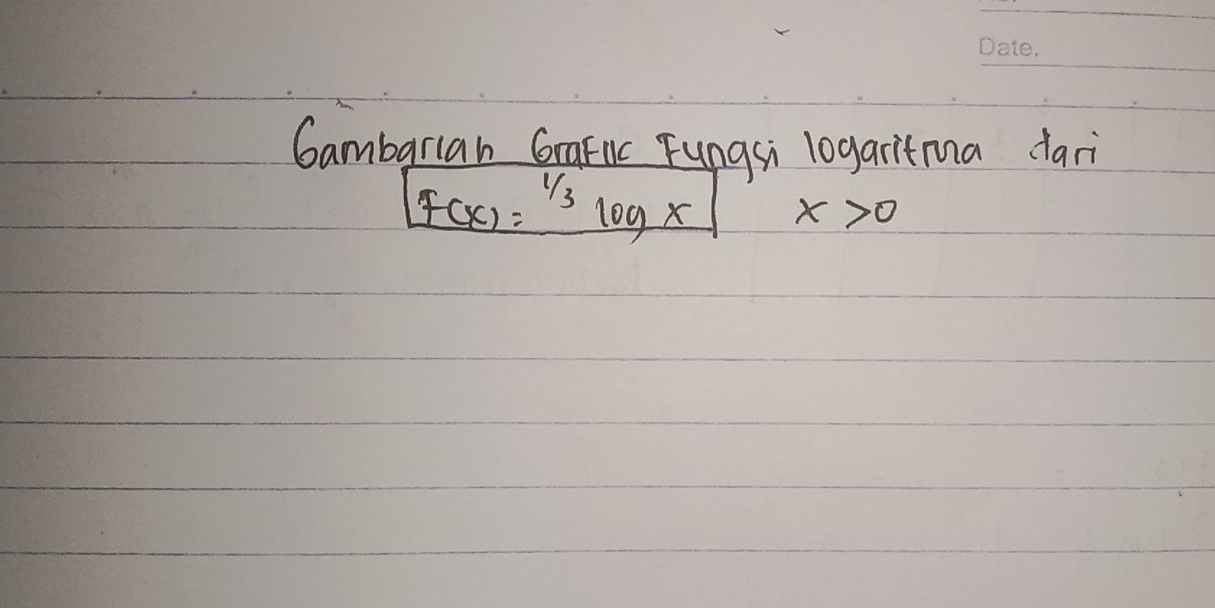 Date.
Gambarlah Grafik Fungsi logaritma dari
F(x) = 1/3 log x x > 0